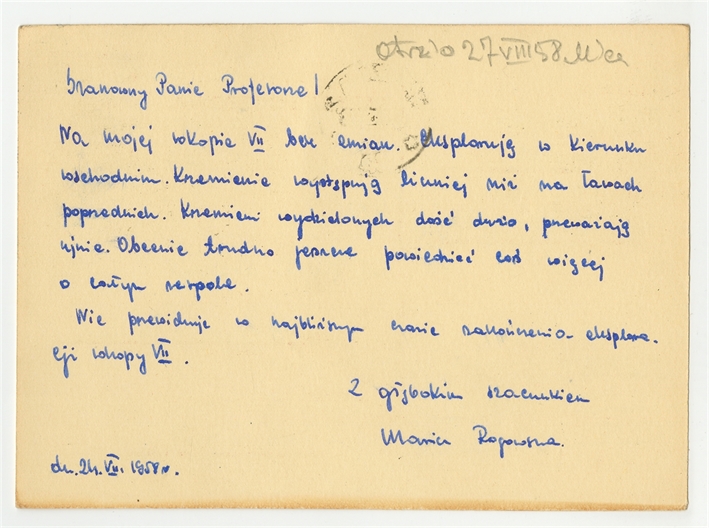 27 VIII 58
Szanowny Panie Profesorze!
Na mojej wkopie VII bez zmian. Eksploruję w kierunku
wschodnim. Krzemienie występują liczniej niż na ławach
poprzednich. Krzemieni wydzielonych dość dużo, przeważają
rylce. Obecnie trudno jeszcze powiedzieć coś więcej
o całym zespole.
Nie przewiduję w najbliższym czasie zakończenia eksplora-
cji wkopy VII.
Z głębokim szacunkiem
Maria
dn. 24. 1958 r.